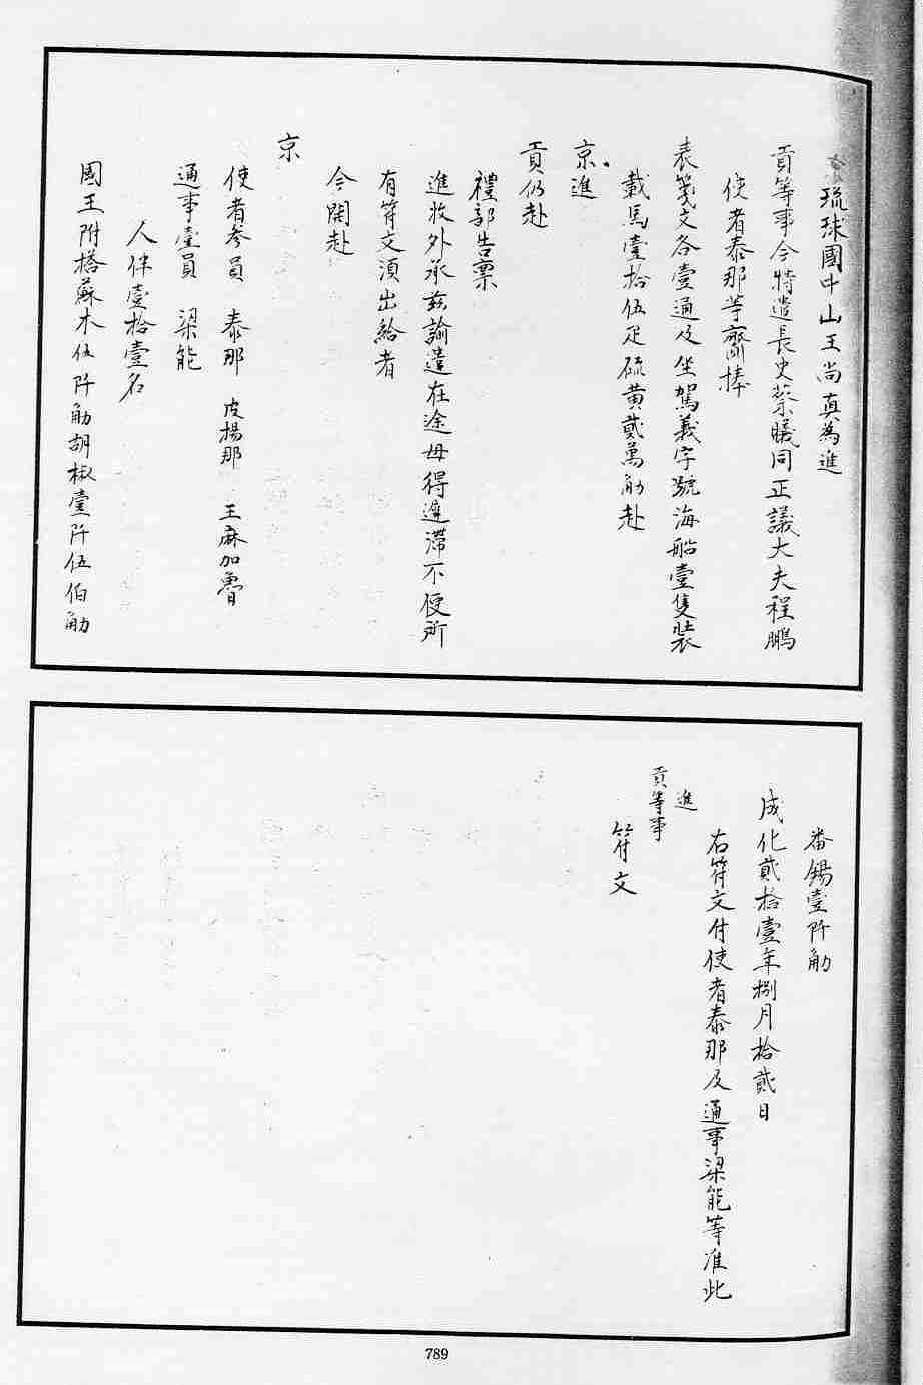 琉球國中山王尚真為進
貢等事今特遣長史蔡曦同正議大夫程鵬
使者泰那等齎捧
表箋文各壹通及坐駕義字號海船壹隻裝
載馬壹拾伍疋硫黄貳萬觔赴
京進
貢仍赴
禮部告稟
進收外承茲諭遣在途毋得遲滯不便所
有符文須出給者
今開赴
京
使者參員 泰那 皮揚那 王麻加魯
通事壹員 梁能
人伴壹拾壹名
國王附搭蘇木伍阡觔胡椒壹阡伍伯觔
番錫壹阡觔
成化貳拾壹年捌月拾貳日
右符文付使者泰那及通事梁能等准此
進
貢等事
符文
789